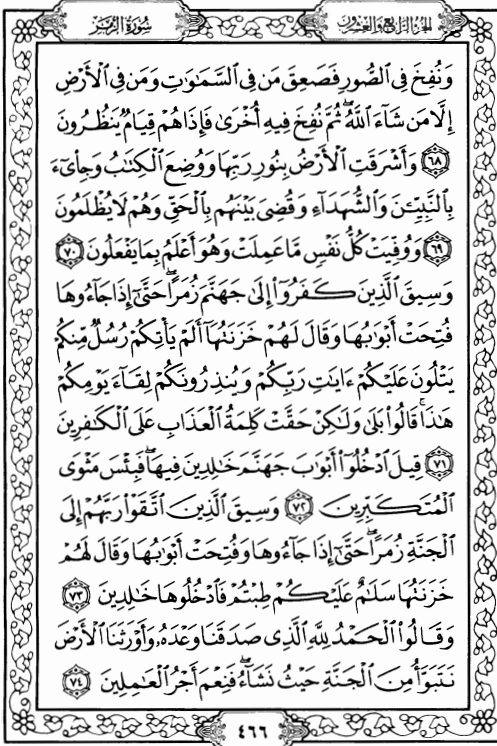 سُورَةُ الزُّمَرِ
الجُزءُ الرَّابِعُ وَالعِشرُونَ
وَنُفِخَ فِى ٱلصُّورِ فَصَعِقَ مَن فِى ٱلسَّمَٰوَٰتِ وَمَن فِى ٱلْأَرْضِ
إِلَّا مَن شَآءَ ٱللَّهُ ۖ ثُمَّ نُفِخَ فِيهِ أُخْرَىٰ فَإِذَا هُمْ قِيَامٌ يَنظُرُونَ
﴿٦٨﴾ وَأَشْرَقَتِ ٱلْأَرْضُ بِنُورِ رَبِّهَا وَوُضِعَ ٱلْكِتَٰبُ وَجِا۟ىٓءَ
بِٱلنَّبِيِّـۧنَ وَٱلشُّهَدَآءِ وَقُضِىَ بَيْنَهُم بِٱلْحَقِّ وَهُمْ لَا يُظْلَمُونَ
﴿٦٩﴾ وَوُفِّيَتْ كُلُّ نَفْسٍ مَّا عَمِلَتْ وَهُوَ أَعْلَمُ بِمَا يَفْعَلُونَ ﴿٧٠﴾
وَسِيقَ ٱلَّذِينَ كَفَرُوٓا۟ إِلَىٰ جَهَنَّمَ زُمَرًا ۖ حَتَّىٰٓ إِذَا جَآءُوهَا
فُتِحَتْ أَبْوَٰبُهَا وَقَالَ لَهُمْ خَزَنَتُهَآ أَلَمْ يَأْتِكُمْ رُسُلٌ مِّنكُمْ
يَتْلُونَ عَلَيْكُمْ ءَايَٰتِ رَبِّكُمْ وَيُنذِرُونَكُمْ لِقَآءَ يَوْمِكُمْ
هَٰذَا ۚ قَالُوا۟ بَلَىٰ وَلَٰكِنْ حَقَّتْ كَلِمَةُ ٱلْعَذَابِ عَلَى ٱلْكَٰفِرِينَ
﴿٧١﴾ قِيلَ ٱدْخُلُوٓا۟ أَبْوَٰبَ جَهَنَّمَ خَٰلِدِينَ فِيهَا ۖ فَبِئْسَ مَثْوَى
ٱلْمُتَكَبِّرِينَ ﴿٧٢﴾ وَسِيقَ ٱلَّذِينَ ٱتَّقَوْا۟ رَبَّهُمْ إِلَى
ٱلْجَنَّةِ زُمَرًا ۖ حَتَّىٰٓ إِذَا جَآءُوهَا وَفُتِحَتْ أَبْوَٰبُهَا وَقَالَ لَهُمْ
خَزَنَتُهَا سَلَٰمٌ عَلَيْكُمْ طِبْتُمْ فَٱدْخُلُوهَا خَٰلِدِينَ ﴿٧٣﴾
وَقَالُوا۟ ٱلْحَمْدُ لِلَّهِ ٱلَّذِى صَدَقَنَا وَعْدَهُۥ وَأَوْرَثَنَا ٱلْأَرْضَ
نَتَبَوَّأُ مِنَ ٱلْجَنَّةِ حَيْثُ نَشَآءُ ۖ فَنِعْمَ أَجْرُ ٱلْعَٰمِلِينَ ﴿٧٤﴾
٤٦٦